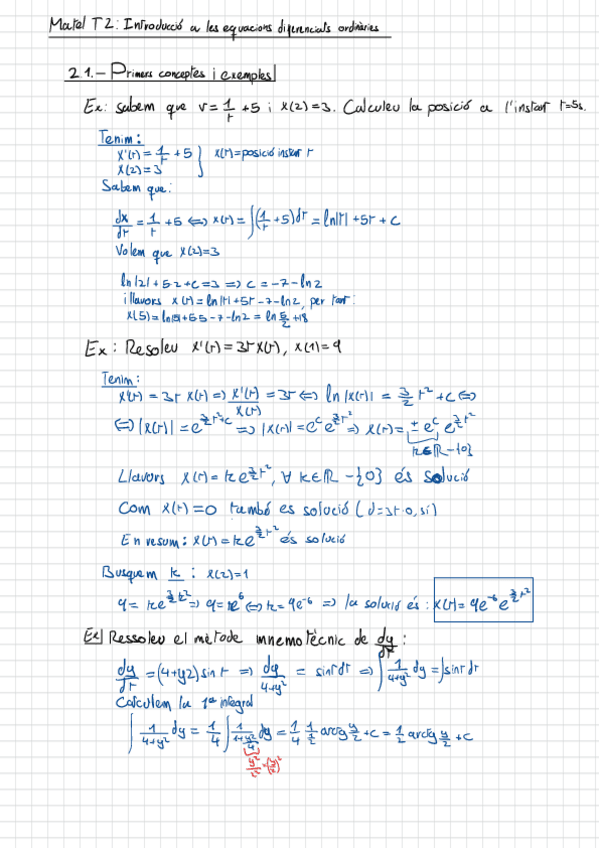 Matel T2: Introducció a les equacions diferencials ordinàries
2.1.- Primers conceptes i exemples
Ex: sabem que v = 1/t + 5 i x(2) = 3. Calculeu la posició a l'instant t=5s.
Tenim:
x'(t) = 1/t + 5 } x(t) = posició instant t
x(2) = 3
Sabem que:
dx/dt = 1/t + 5 ⇔ x(t) = ∫(1/t + 5)dt = ln|t| + 5t + c
Volem que x(2)=3
ln|2| + 5·2 + c = 3 ⇒ c = -7 - ln2
i llavors x(t) = ln|t| + 5t - 7 - ln2, per tant:
x(5) = ln|5| + 5·5 - 7 - ln2 = ln 5/2 + 18
Ex: Resoleu x'(t) = 3t x(t), x(1) = 9
Tenim:
x'(t) = 3t x(t) ⇒ x'(t)/x(t) = 3t ⇔ ln|x(t)| = 3/2 t² + c ⇔
⇔ |x(t)| = e^(3/2 t² + c) ⇒ |x(t)| = e^c e^(3/2 t²) ⇒ x(t) = ± e^c e^(3/2 t²)
k∈ℝ-{0}
Llavors x(t) = k e^(3/2 t²), ∀ k∈ℝ - {0} és solució
Com x(t) = 0 també es solució (0' = 3t·0, sí)
En resum: x(t) = k e^(3/2 t²) és solució
Busquem k: x(2)=1
9 = k e^(3/2 2²) ⇒ 9 = k e^6 ⇔ k = 9e^-6 ⇒ la solució és: x(t) = 9e^-6 e^(3/2 t²)
Ex| Ressoleu el mètode mnemotècnic de dy/dt:
dy/dt = (4+y2) sin t ⇒ dy/(4+y²) = sint dt ⇒ ∫ 1/(4+y²) dy = ∫sint dt
Calculem la 1ª integral
∫ 1/(4+y²) dy = 1/4 ∫ 1/(1+y²/4) dy = 1/4 1/(1/2) arctg y/2 + c = 1/2 arctg y/2 + c
y²/2² = (y/2)²